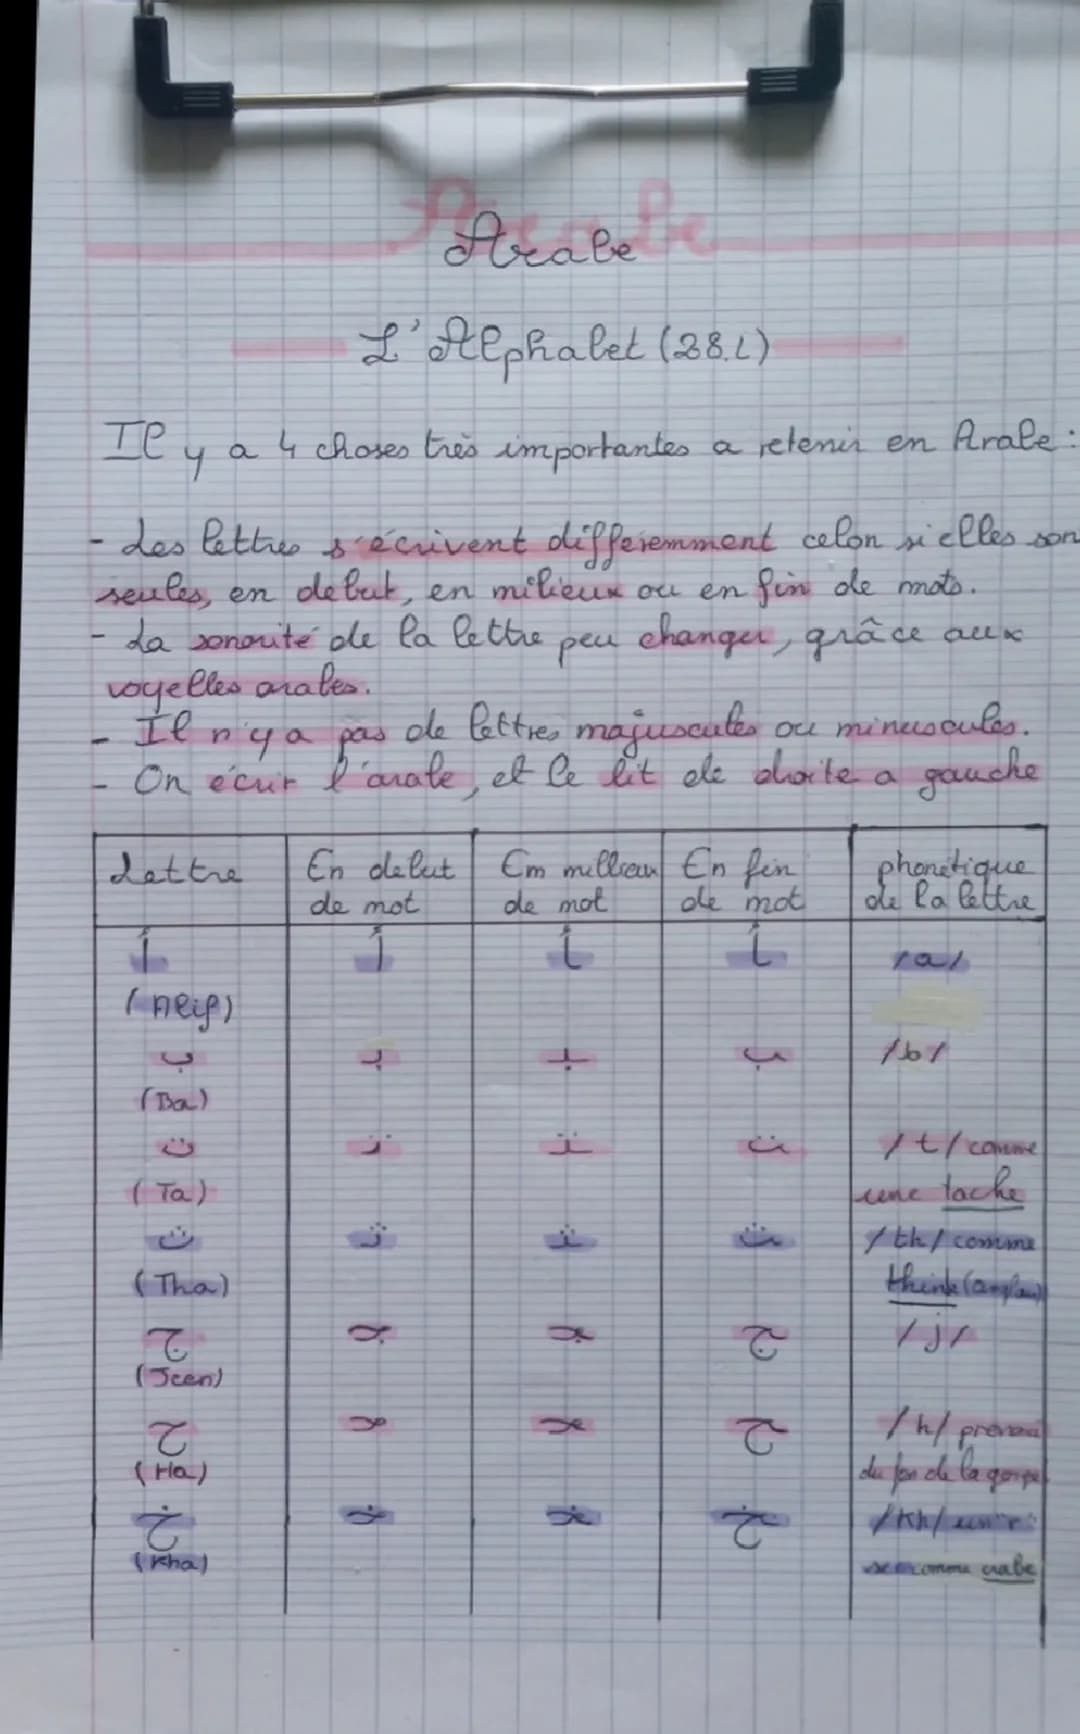 Arabe
Arabe
L'Alphabet (28.L)
Il y a 4 choses très importantes a retenir en Arabe :
- Les lettres s'écrivent différemment celon si elles son
seules, en debut, en milieux ou en fin de mots.
- La sonorité de la lettre peu changer, grâce aux
voyelles arabes.
- Il n'y a pas de lettres majuscules ou minuscules.
- On écrir l'arabe, et le lit de droite a gauche
Lettre En debut En millieu En fin phonétique
de mot de mot de mot de la lettre
أ أ ـأ ـأ /a/
(Alif)
ب بـ ـبـ ـب /b/
(Ba)
ت تـ ـتـ ـت /t/ comme
(Ta) une tache
ث ثـ ـثـ ـث /th/ comme
(Tha) think
ج جـ ـجـ ـج /j/
(Jeen)
ح حـ ـحـ ـح /h/
(Ha) du fon de la
خ خـ ـخـ ـخ /Kh/ un r
(Kha) comme crabe